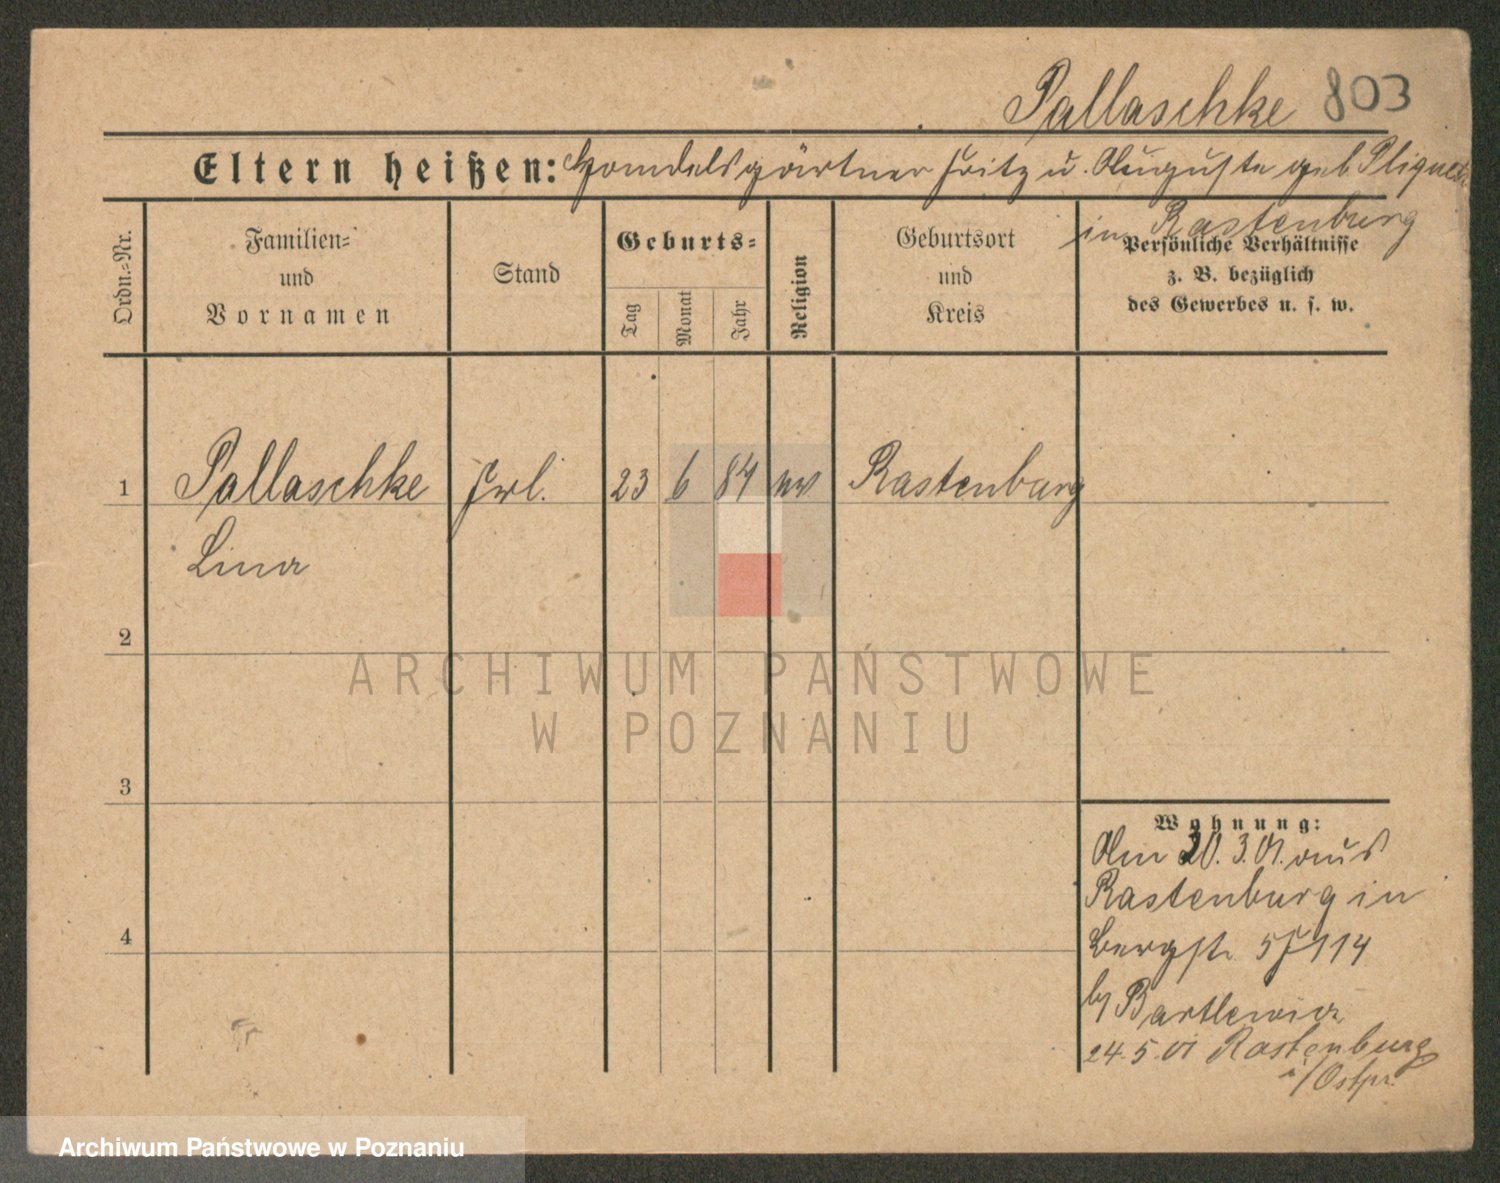 Pallaschke 803
Eltern heißen: Handelsgärtner Fritz u. Auguste geb.
in Rastenburg
Ordn.-Nr.
Familien-
und
Vornamen
Stand
Geburts-
Tag
Monat
Jahr
Religion
Geburtsort
und
Kreis
Persönliche Verhältnisse
z. B. bezüglich
des Gewerbes u. s. w.
1 Pallaschke Frl. 23 6 84 ev Rastenburg
Lina
2
ARCHIWUM PAŃSTWOWE
W POZNANIU
3
Wohnung:
Am 20. 3. 01. aus
Rastenburg in
4
Bergstr.
b/ Bartlewicz
24. 5. 01 Rastenburg
i/Ostpr.
Archiwum Państwowe w Poznaniu